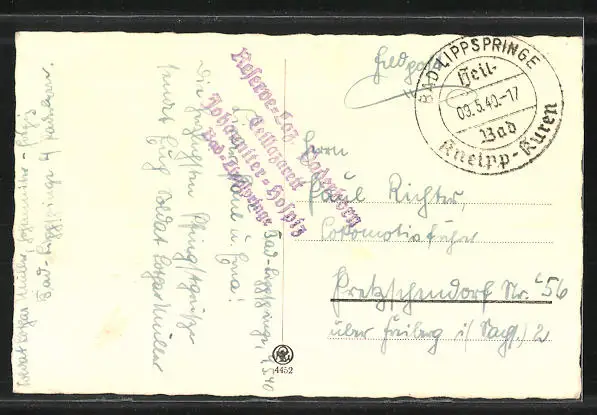 Soldat Lothar Müller, Johanniter-Hospiz
Bad-Lippspringe
Bad-Lippspringe 9.5.40
Lieber Paul u. Erna!
Die herzlichsten Pfingstgrüße
sendet Euch Soldat Lothar Müller
Reserve-Laz. Paderborn
Teillazarett
Johanniter-Hospiz
Bad-Lippspringe
Feldpost
BAD LIPPSPRINGE
Heil-
09.5.40-17
Bad
Kneipp-Kuren
Herrn
Paul Richter,
Lokomotivführer
Pretzschendorf Nr. 56
über Freiberg i/ Sachs.) 2
4452